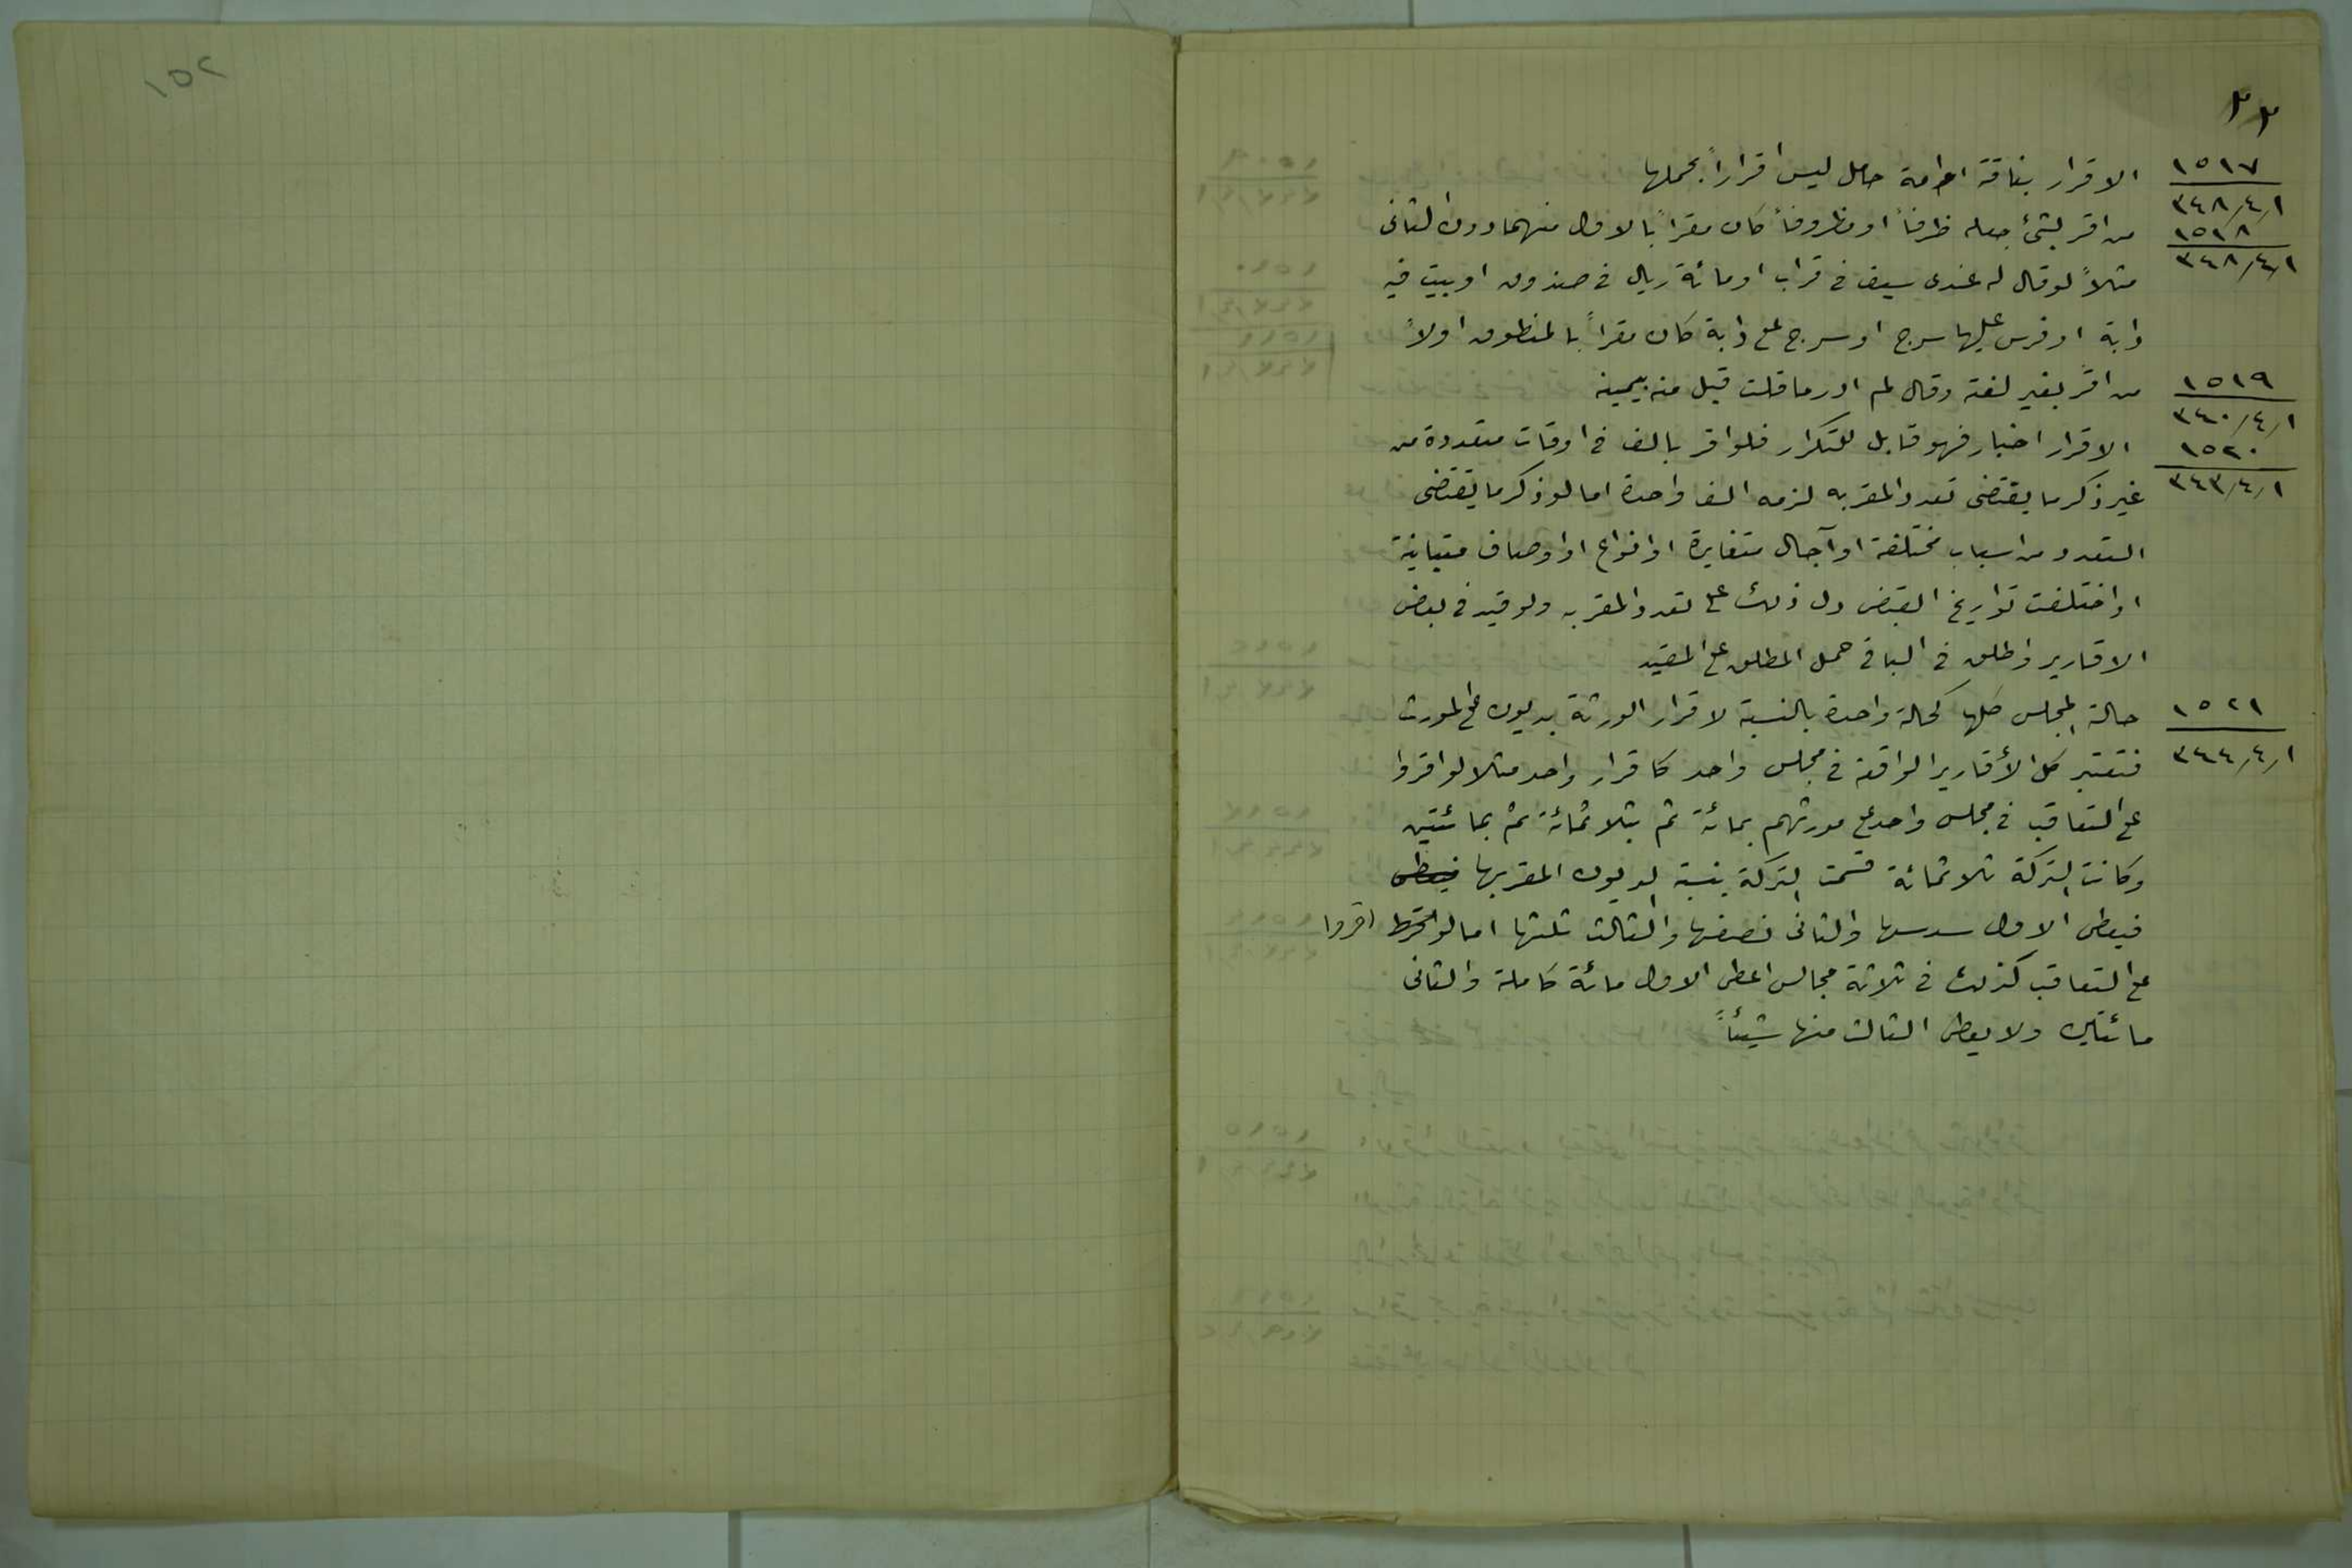 ٢٢
١٥١٧ الاقرار بناقة او امة حامل ليس اقراراً بحملها
٣٤٨/٤/١
١٥١٨ من اقر بشئ جعله ظرفاً او مظروفاً كان مقراً بالاول منهما دون الثانى
٣٤٨/٤/١
مثلاً لو قال له عندى سيف فى قراب او مائة ريال فى صندوق او بيت فيه
دابة او فرس عليها سرج او سرج على دابة كان مقراً بالمنطوق اولاً
١٥١٩ من اقر بغير لغته وقال لم ادر ما قلت قبل منه بيمينه
٣٤٠/٤/١
١٥٢٠ الاقرار اخبار فهو قابل للتكرار فلو اقر بالف فى اوقات متعددة من
٣٤٣/٤/١ غير ذكر ما يقتضى تعدد المقر به لزمه الف واحدة اما لو ذكر ما يقتضى
التعدد من اسباب مختلفة او آجال متغايرة او انواع او اوصاف متباينة
او اختلفت تواريخ القبض دل ذلك على تعدد المقر به ولو قيد فى بعض
الاقارير واطلق فى الباقى حمل المطلق على المقيد
١٥٢١ حالة المجلس كلها كحالة واحدة بالنسبة لاقرار الورثة بديون على المورث
٣٤٤/٤/١ فتعتبر كل الأقارير الواقعة فى مجلس واحد كاقرار واحد مثلا لو اقروا
على التعاقب فى مجلس واحد على مورثهم بمائة ثم بثلاثمائة ثم بمائتين
وكانت التركة ثلاثمائة قسمت التركة بنسبة الديون المقر بها فيعطى
فيعطى الاول سدسها والثانى نصفها والثالث ثلثها اما لو اقروا
على التعاقب كذلك فى ثلاثة مجالس اعطى الاول مائة كاملة والثانى
مائتين ولا يعطى الثالث منها شيئاً
١٥٢